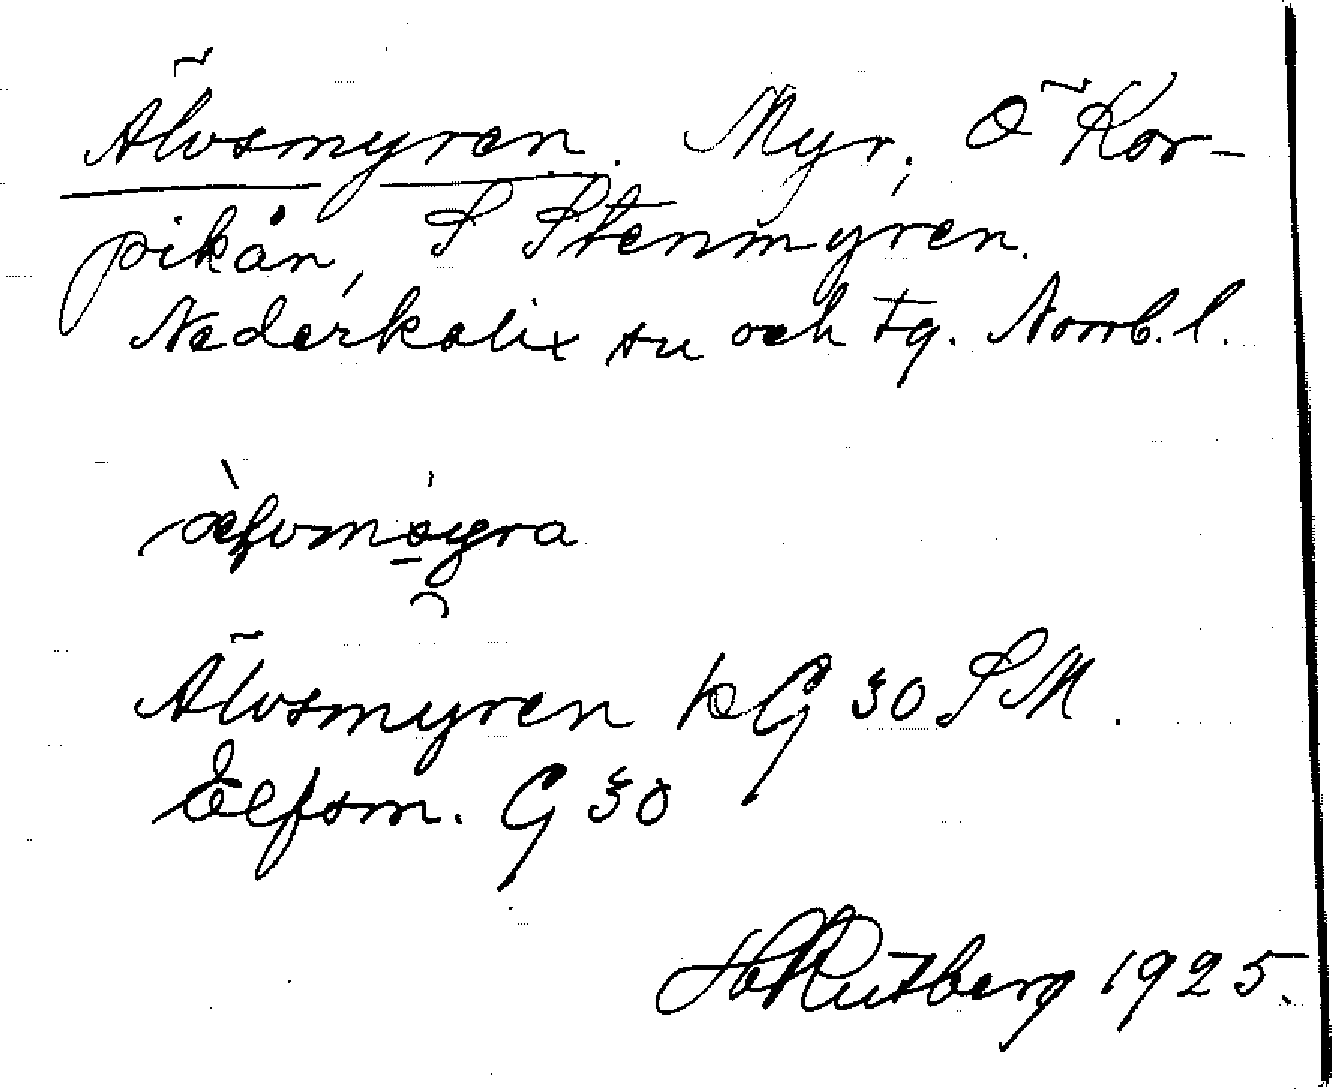 Älvsmyren. Myr. Ö Kor-
pikån, S Stenmyren.
Nederkalix sn och tg. Norrb. l.
Älvsmyren kG 30 SM.
Elfsm. G 30
Rutberg 1925.